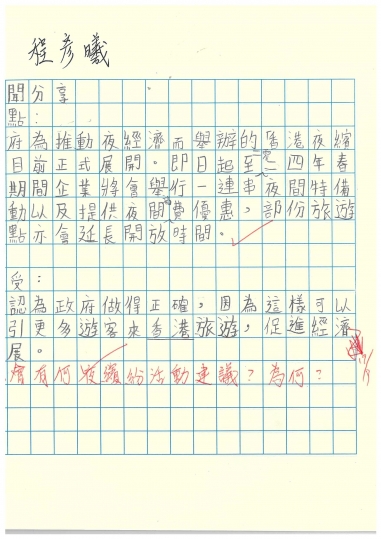 程彥曦
聞分享
點：
府為推動夜經濟而舉辦的香港夜繽
目前正式展開。即日起至二零二四年春
期間企業將會舉行一連串夜間特備
動以及提供夜間消費優惠，部份旅遊
點亦會延長開放時間。
受：
認為政府做得正確，因為這樣可以
引更多遊客來香港旅遊，促進經濟
展。
會有何夜繽紛活動建議？為何？